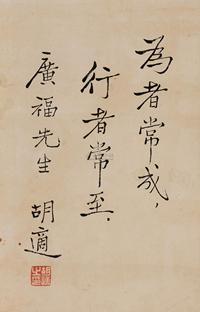 為者常成，
行者常至．
廣福先生
胡適